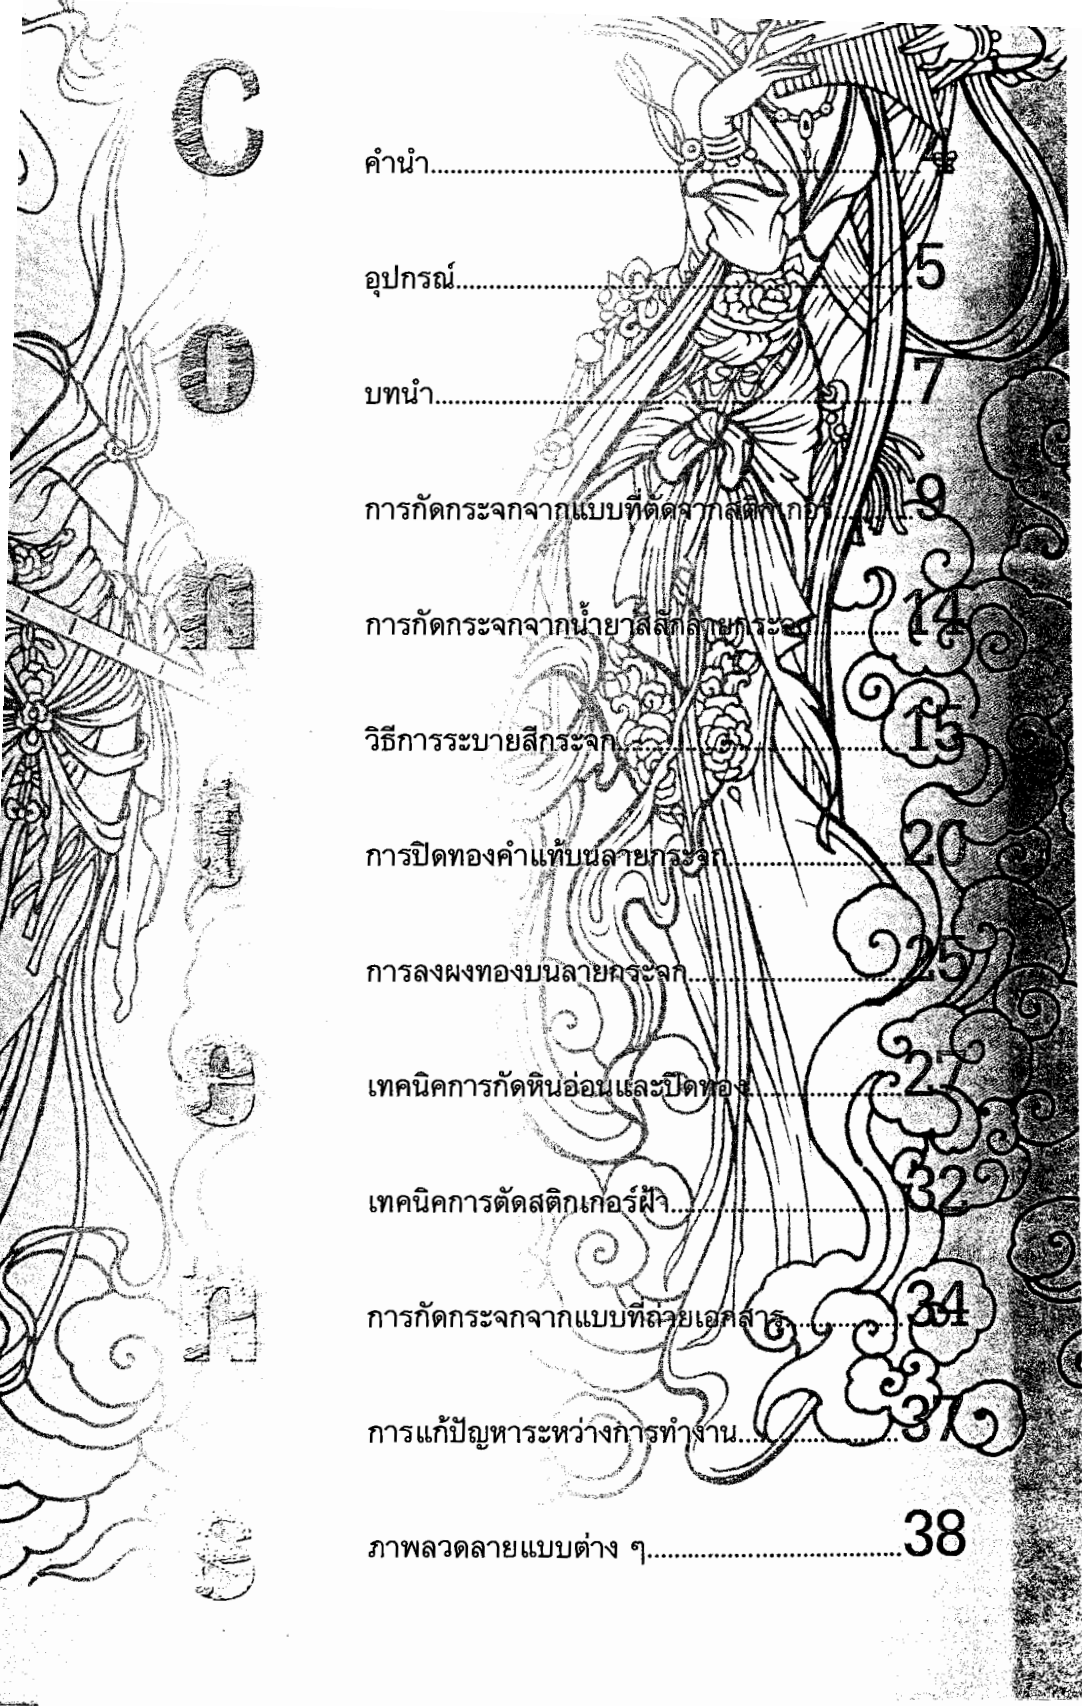 Contents
คำนำ
อุปกรณ์ 5
บทนำ 7
การกัดกระจกจากแบบที่ตัดจากสติกเกอร์ 9
การกัดกระจกจากน้ำยาสีสักลายกระจก 14
วิธีการระบายสีกระจก 15
การปิดทองคำแท้บนลายกระจก 20
การลงผงทองบนลายกระจก 25
เทคนิคการกัดหินอ่อนและปิดทอง 27
เทคนิคการตัดสติกเกอร์ฝ้า 32
การกัดกระจกจากแบบที่ถ่ายเอกสาร 34
การแก้ปัญหาระหว่างการทำงาน 37
ภาพลวดลายแบบต่าง ๆ 38